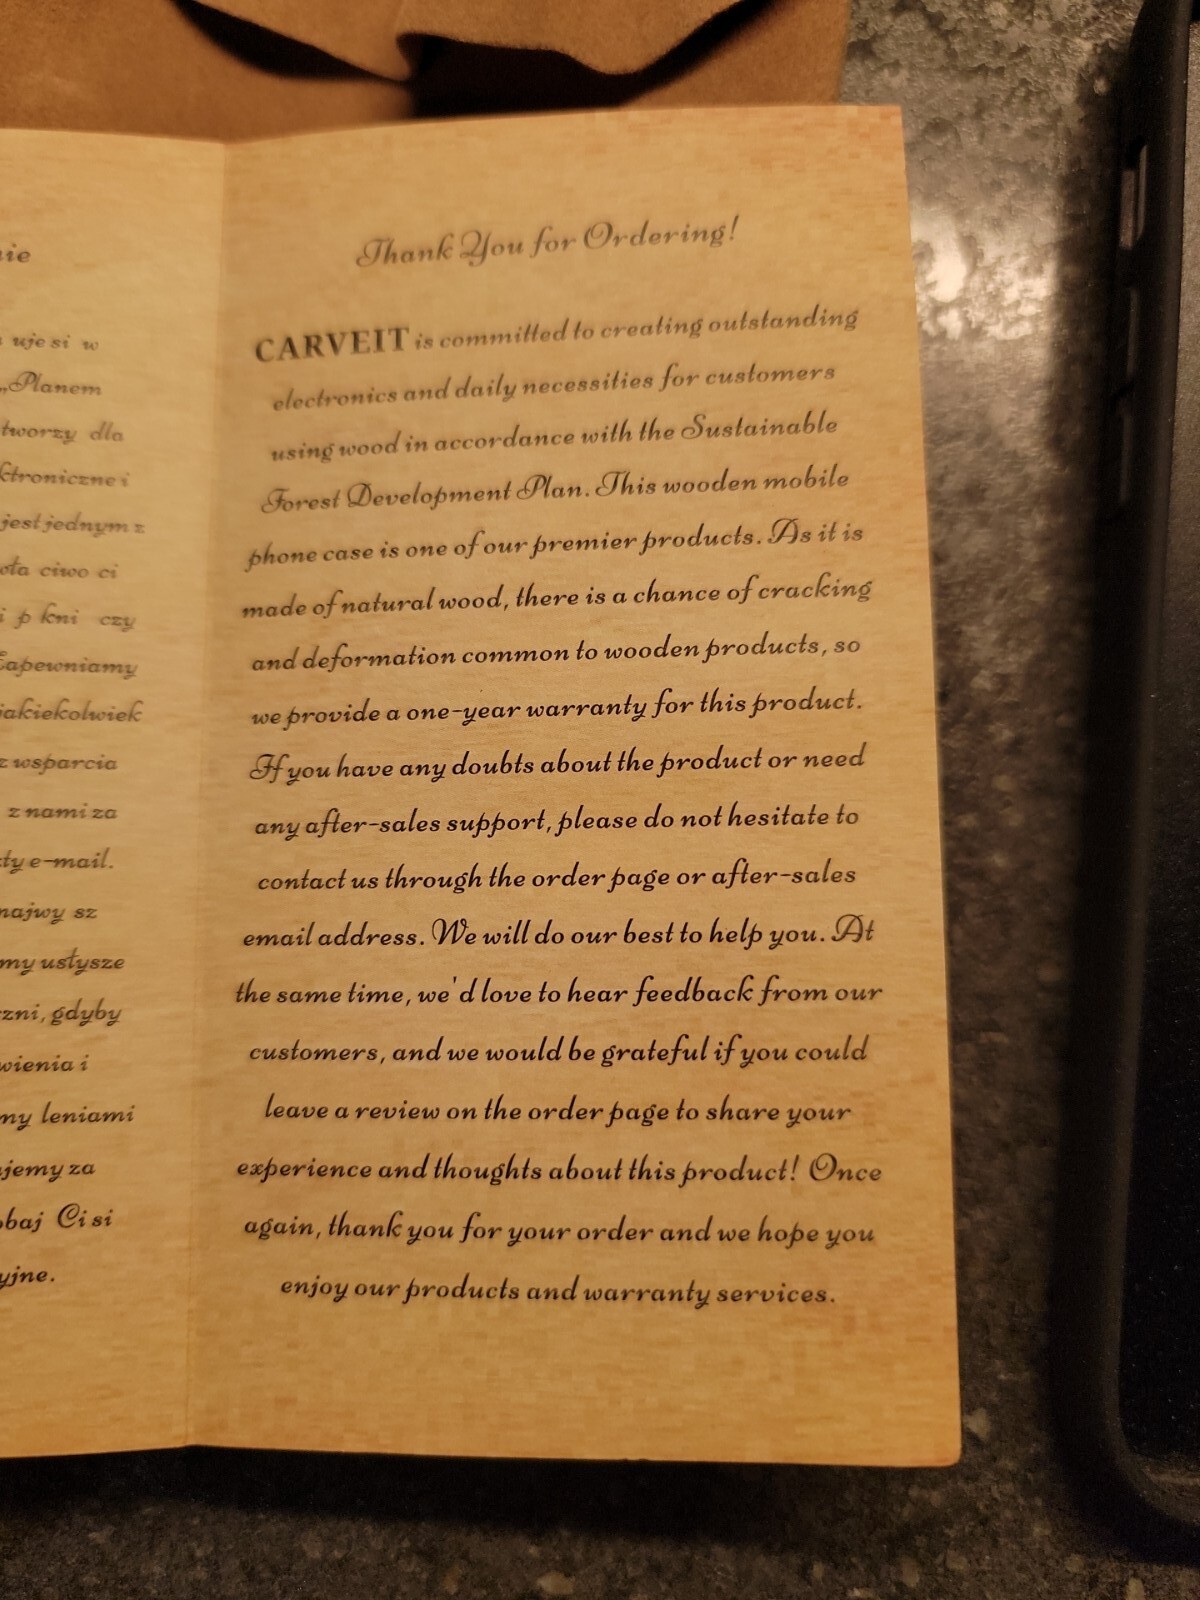 nie
uje si w
„Planem
tworzy dla
ktroniczne i
jest jednym z
ota ciwo ci
i p kni czy
Zapewniamy
jakiekolwiek
z wsparcia
z nami za
ty e-mail.
najwy sz
my usłysze
zni, gdyby
wienia i
my leniami
jemy za
obaj Ci si
yjne.
Thank You for Ordering!
CARVEIT is committed to creating outstanding
electronics and daily necessities for customers
using wood in accordance with the Sustainable
Forest Development Plan. This wooden mobile
phone case is one of our premier products. As it is
made of natural wood, there is a chance of cracking
and deformation common to wooden products, so
we provide a one-year warranty for this product.
If you have any doubts about the product or need
any after-sales support, please do not hesitate to
contact us through the order page or after-sales
email address. We will do our best to help you. At
the same time, we'd love to hear feedback from our
customers, and we would be grateful if you could
leave a review on the order page to share your
experience and thoughts about this product! Once
again, thank you for your order and we hope you
enjoy our products and warranty services.